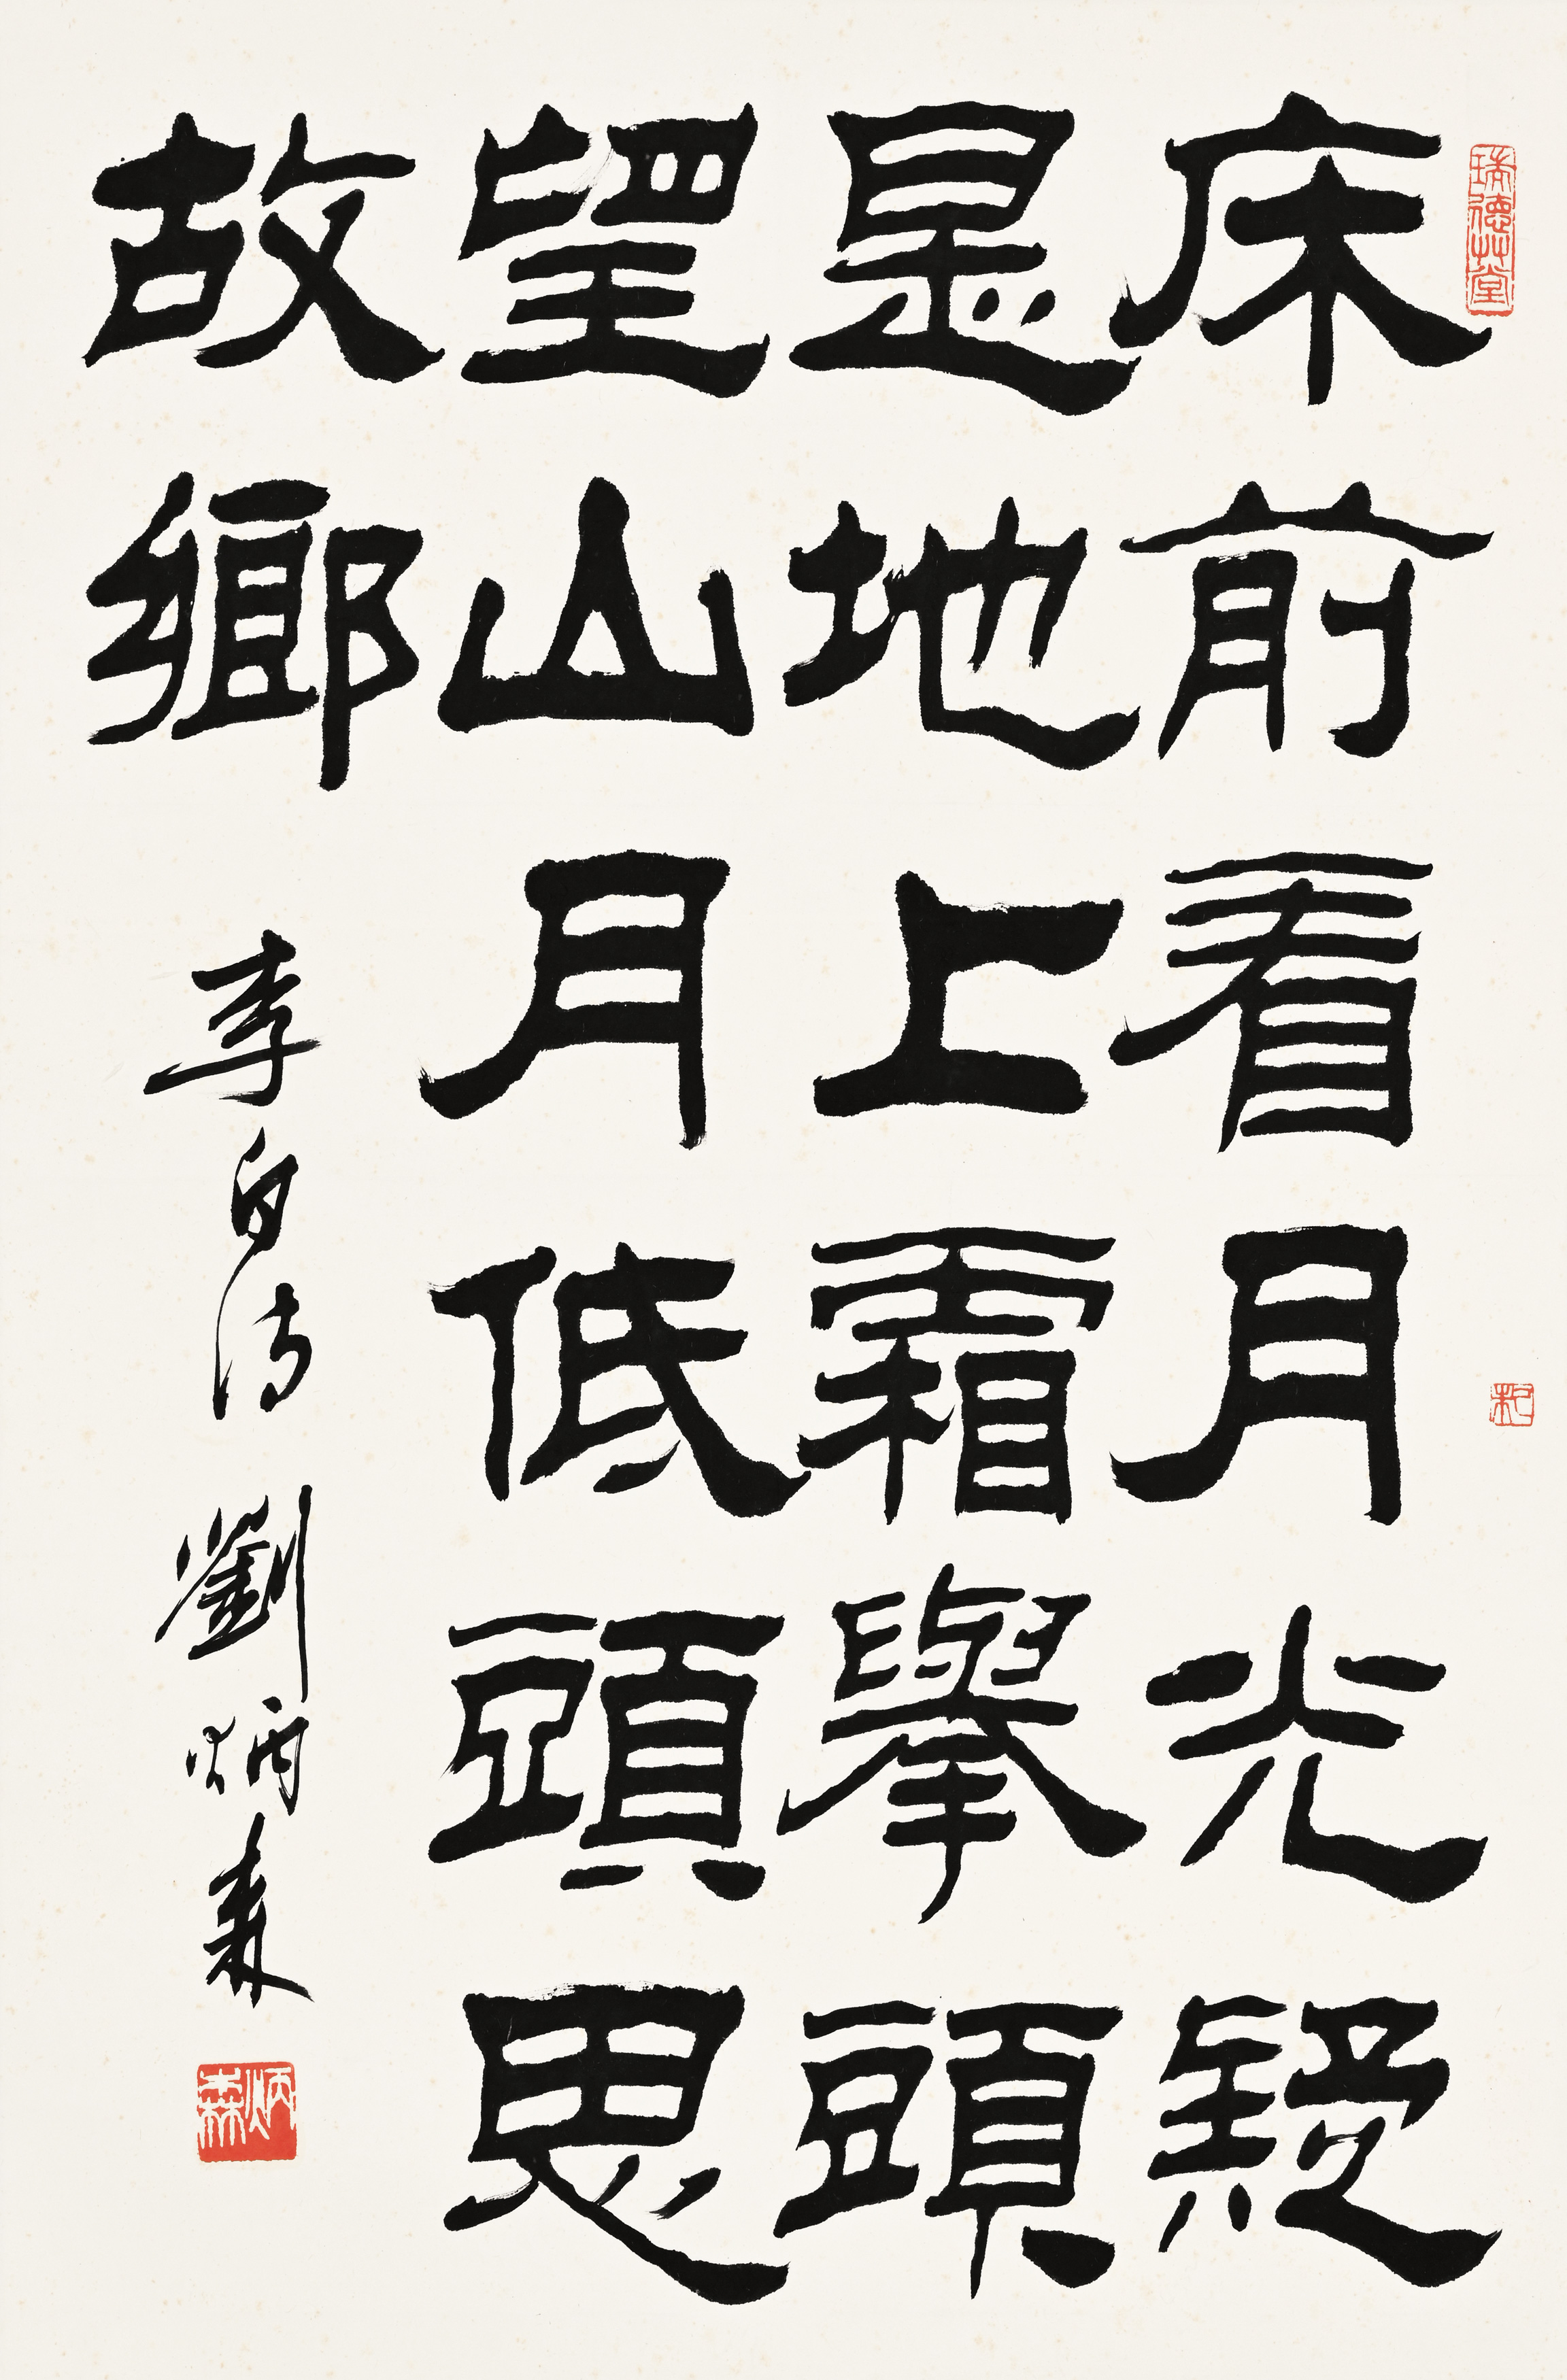 床前看月光疑
是地上霜舉頭
望山月低頭思
故鄉
李白詩 劉炳森
炳森